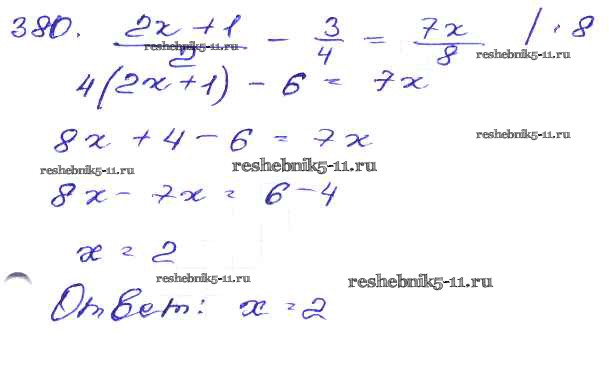 380. (2x + 1)/2 - 3/4 = 7x/8 / · 8
reshebnik5-11.ru reshebnik5-11.ru
4(2x+1) - 6 = 7x
8x + 4 - 6 = 7x reshebnik5-11.ru
reshebnik5-11.ru reshebnik5-11.ru
8x - 7x = 6 - 4
x = 2
reshebnik5-11.ru reshebnik5-11.ru
Ответ: x = 2